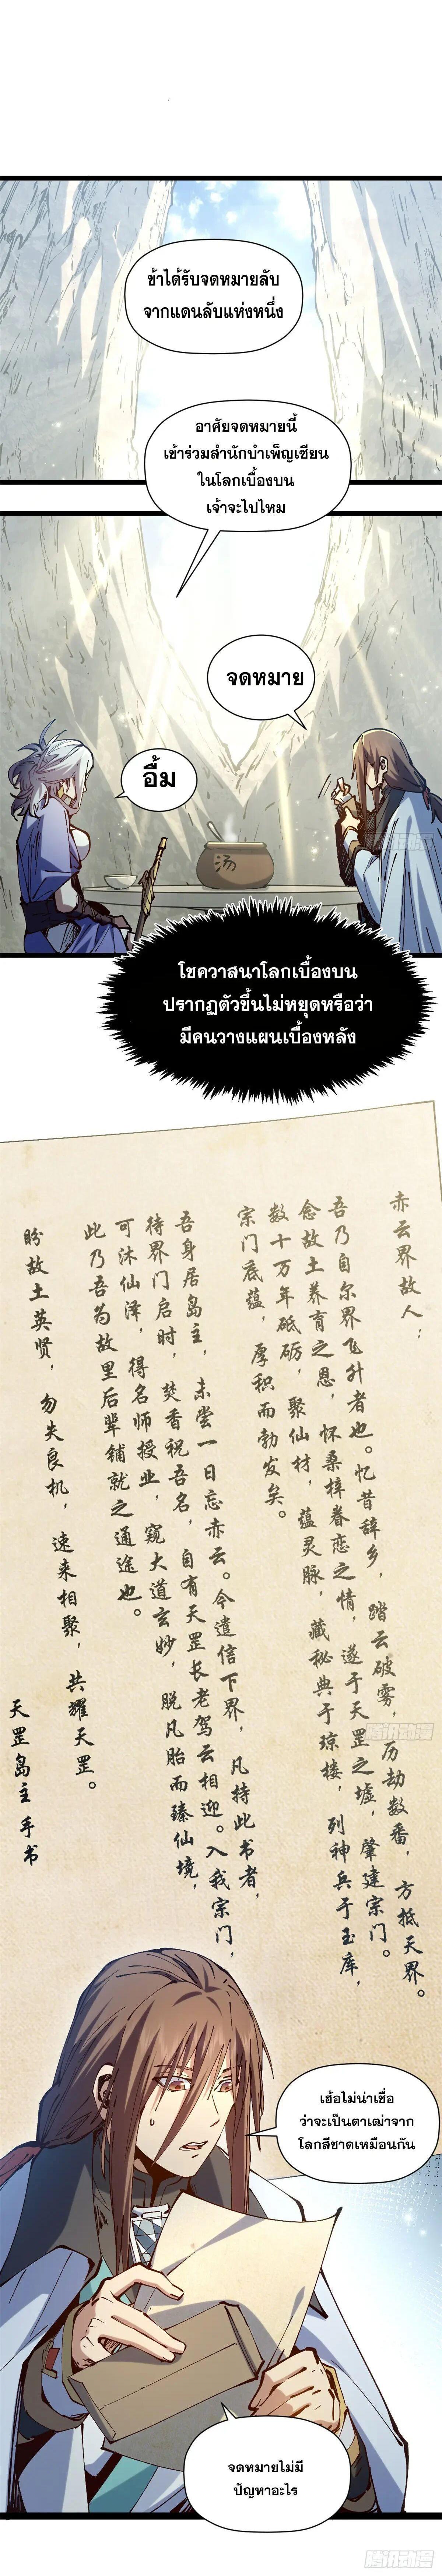 ข้าได้รับจดหมายลับ
จากแดนลับแห่งหนึ่ง
อาศัยจดหมายนี้
เข้าร่วมสำนักบำเพ็ญเซียน
ในโลกเบื้องบน
เจ้าจะไปไหม
จดหมาย
อื้ม
汤
腾讯动漫
โชควาสนาโลกเบื้องบน
ปรากฏตัวขึ้นไม่หยุดหรือว่า
มีคนวางแผนเบื้องหลัง
赤云界故人：
吾乃自尔界飞升者也。忆昔辞乡，踏云破雾，历劫数番，方抵天界。
念故土养育之恩，怀桑梓眷恋之情，遂于天罡之墟，肇建宗门。
数十万年砥砺，聚仙材，蕴灵脉，藏秘典于琼楼，列神兵于玉库，
宗门底蕴，厚积而勃发矣。
吾身居岛主，未尝一日忘赤云。今遣信下界，凡持此书者，
待界门启时，焚香祝吾名，自有天罡长老驾云相迎。入我宗门，
可沐仙泽，得名师授业，窥大道玄妙，脱凡胎而臻仙境，
此乃吾为故里后辈铺就之通途也。
盼故土英贤，勿失良机，速来相聚，共耀天罡。
天罡岛主 手书
腾讯动漫
เฮ้อไม่น่าเชื่อ
ว่าจะเป็นตาเฒ่าจาก
โลกสีชาดเหมือนกัน
จดหมายไม่มี
ปัญหาอะไร
腾讯动漫